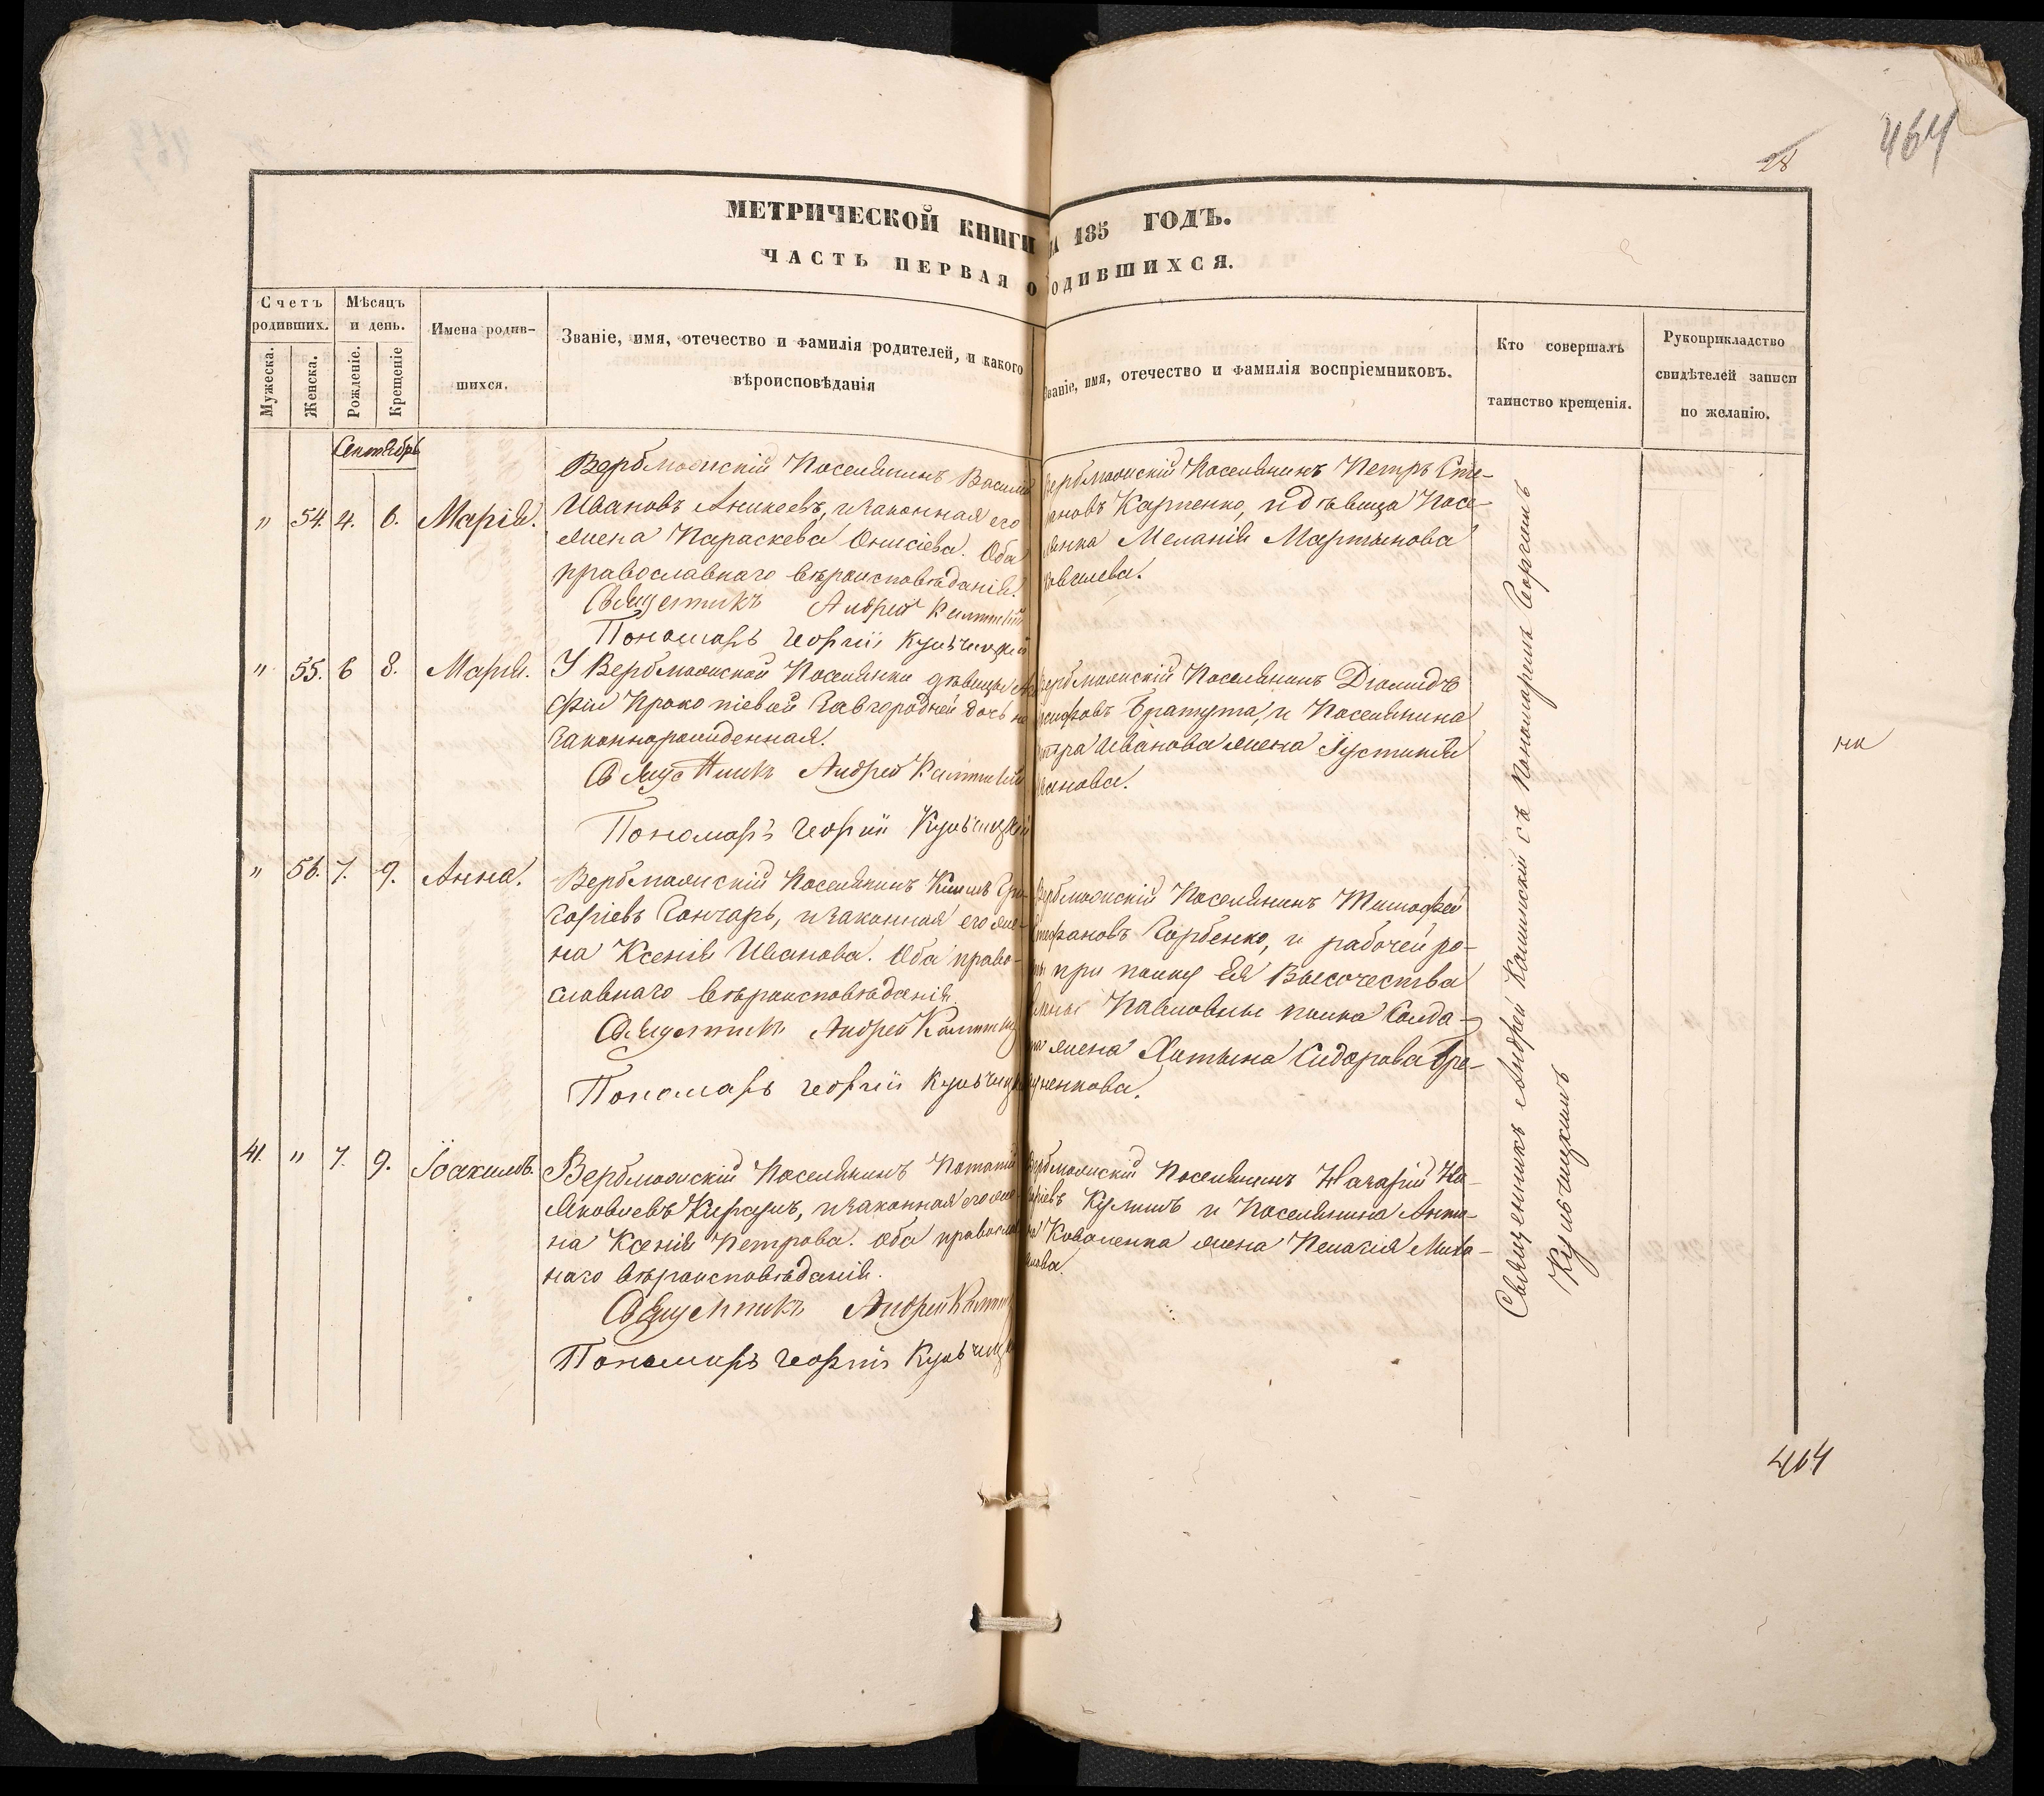 464
28
МЕТРИЧЕСКОЙ КНИГИ НА 185 ГОДЪ.
ЧАСТЬ ПЕРВАЯ О РОДИВШИХСЯ.
Счетъ родивших.
Мужеска.
Женска.
Мѣсяцъ и день.
Рожденіе.
Крещеніе
Имена родив-
шихся.
Званіе, имя, отечество и фамилія родителей, и какого
вѣроисповѣданія
Званіе, имя, отечество и фамилія воспріемниковъ.
Кто совершалъ
таинство крещенія.
Рукоприкладство
свидѣтелей записи
по желанію.
Сентябрь
" 54. 4. 6. Марія.
Вербмаоискій Поселянинъ Василій
Ивановъ Аникеевъ, и законная его
жена Параскева Онисіева. Оба
православнаго вѣроисповѣданія.
Священникъ Андрей
Пономарь Георгій Кульчицкій
Вербмаоискій Поселянинъ Петръ Сте-
ановъ Карпенко, и дѣвица Посе-
лянка Меланія Мартынова
овалева.
" 55. 6 8. Марія.
У Вербмаоиской Поселянки дѣвицы
фіи Прокопіевой Завгородней дочь не
законнорожденная.
Священникъ Андрей
Пономарь Георгій Кульчицкій
Вербмаоискій Поселянинъ Діомидъ
осифовъ Братута, и Поселянина
Петра Иванова жена Іустинія
ванова.
на
" 56. 7. 9. Анна.
Вербмаоискій Поселянинъ Климъ Гри-
горіевъ Гончаръ, и законная его же-
на Ксенія Иванова. Оба право-
славнаго вѣроисповѣданія.
Священникъ Андрей
Пономарь Георгій Кульчицкій
Вербмаоискій Поселянинъ Тимофей
Стефановъ Горбенко, и рабочей ро-
ты при полку Ея Высочества
Павловны полка Солда-
та жена Хитына Сидорова Гре-
ченкова.
41. " 7. 9. Іоакимъ.
Вербмаоискій Поселянинъ Потапій
Яковлевъ, и законная его же-
на Ксенія Петрова. Оба православ
наго вѣроисповѣданія.
Священникъ Андрей
Пономарь Георгій Кульчицкій
Вербмаоискій Поселянинъ Назарій На-
заріевъ Кулишъ и Поселянина Анто-
на Коваленка жена Пелагія Миха-
йлова.
Священникъ Андрей съ Пономаремъ Георгіемъ
Кульчицкимъ
464